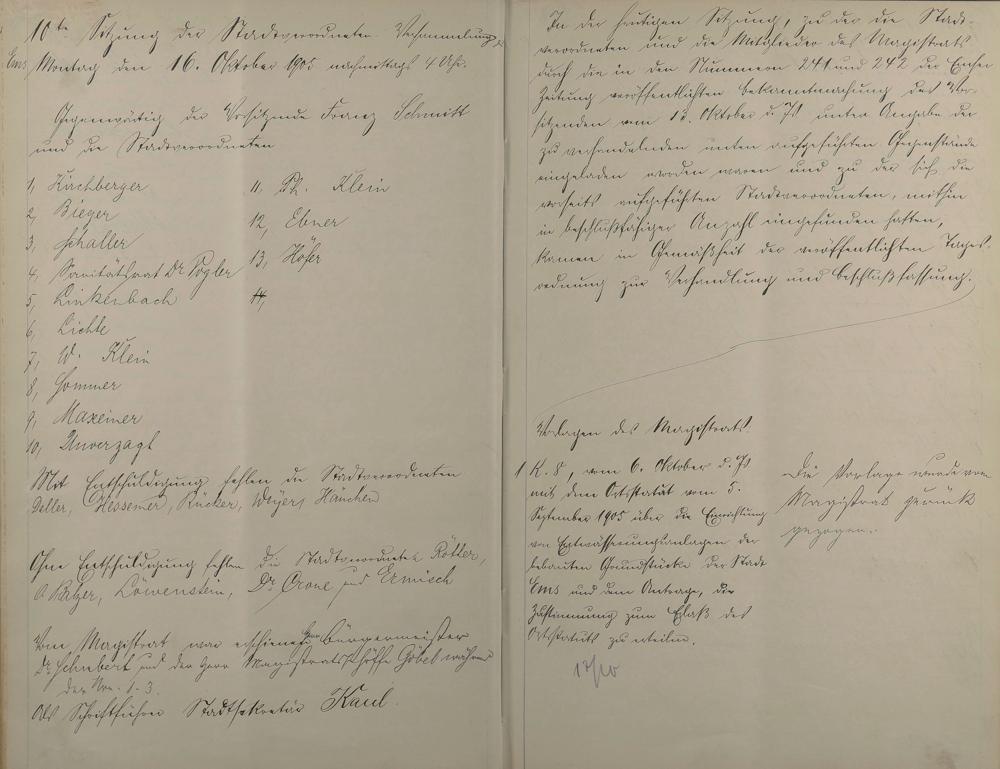 10te Sitzung der Stadtverordneten-Versammlung
Ems, Montag den 16. Oktober 1905 nachmittags 4 Uhr.
Gegenwärtig der Vorsitzende Franz Schmitt
und die Stadtverordneten
1, Kirchberger
2, Bieger
3, Schaller
4, Sanitätsrat Dr Vogler
5, Linkenbach
6, Lichte
7, W. Klein
8, Sommer
9, Maxeiner
10, Unverzagt
11. Ph. Klein
12, Ebner
13, Höfer
14,
Mit Entschuldigung fehlen die Stadtverordneten
Deller, Hessemer, Rücker, Weyer, Hänchen
Ohne Entschuldigung fehlen die Stadtverordneten Rötter,
A Balzer, Löwenstein, Dr Crone und Ermisch
Vom Magistrat war erschienen Herr Bürgermeister
Dr Schubert und der Herr Magistratsschöffe Göbel während
der Nrn. 1-3.
Als Schriftführer Stadtsekretär Kaul.
In der heutigen Sitzung, zu der die Stadt-
verordneten und die Mitglieder des Magistrats
durch die in den Nummern 241 und 242 der Emser
Zeitung veröffentlichten Bekanntmachung des Vor-
sitzenden vom 12. Oktober d. Js unter Angabe der
zu verhandelnden unten aufgeführten Gegenstände
eingeladen worden waren und zu der sich die
vorseits aufgeführten Stadtverordneten, mithin
in beschlußfähiger Anzahl eingefunden hatten,
kamen in Gemäßheit der veröffentlichten Tages-
ordnung zur Verhandlung und Beschlußfassung.
Vorlagen des Magistrats.
1 K. 8, vom 6. Oktober d. Js
mit dem Ortsstatut vom 5.
September 1905 über die Einrichtung
von Entwässerungsanlagen der
bebauten Grundstücke der Stadt
Ems und dem Antrage, die
Zustimmung zum Erlaß des
Ortsstatuts zu erteilen.
Die Vorlage wurde vom
Magistrat zurück
gezogen.